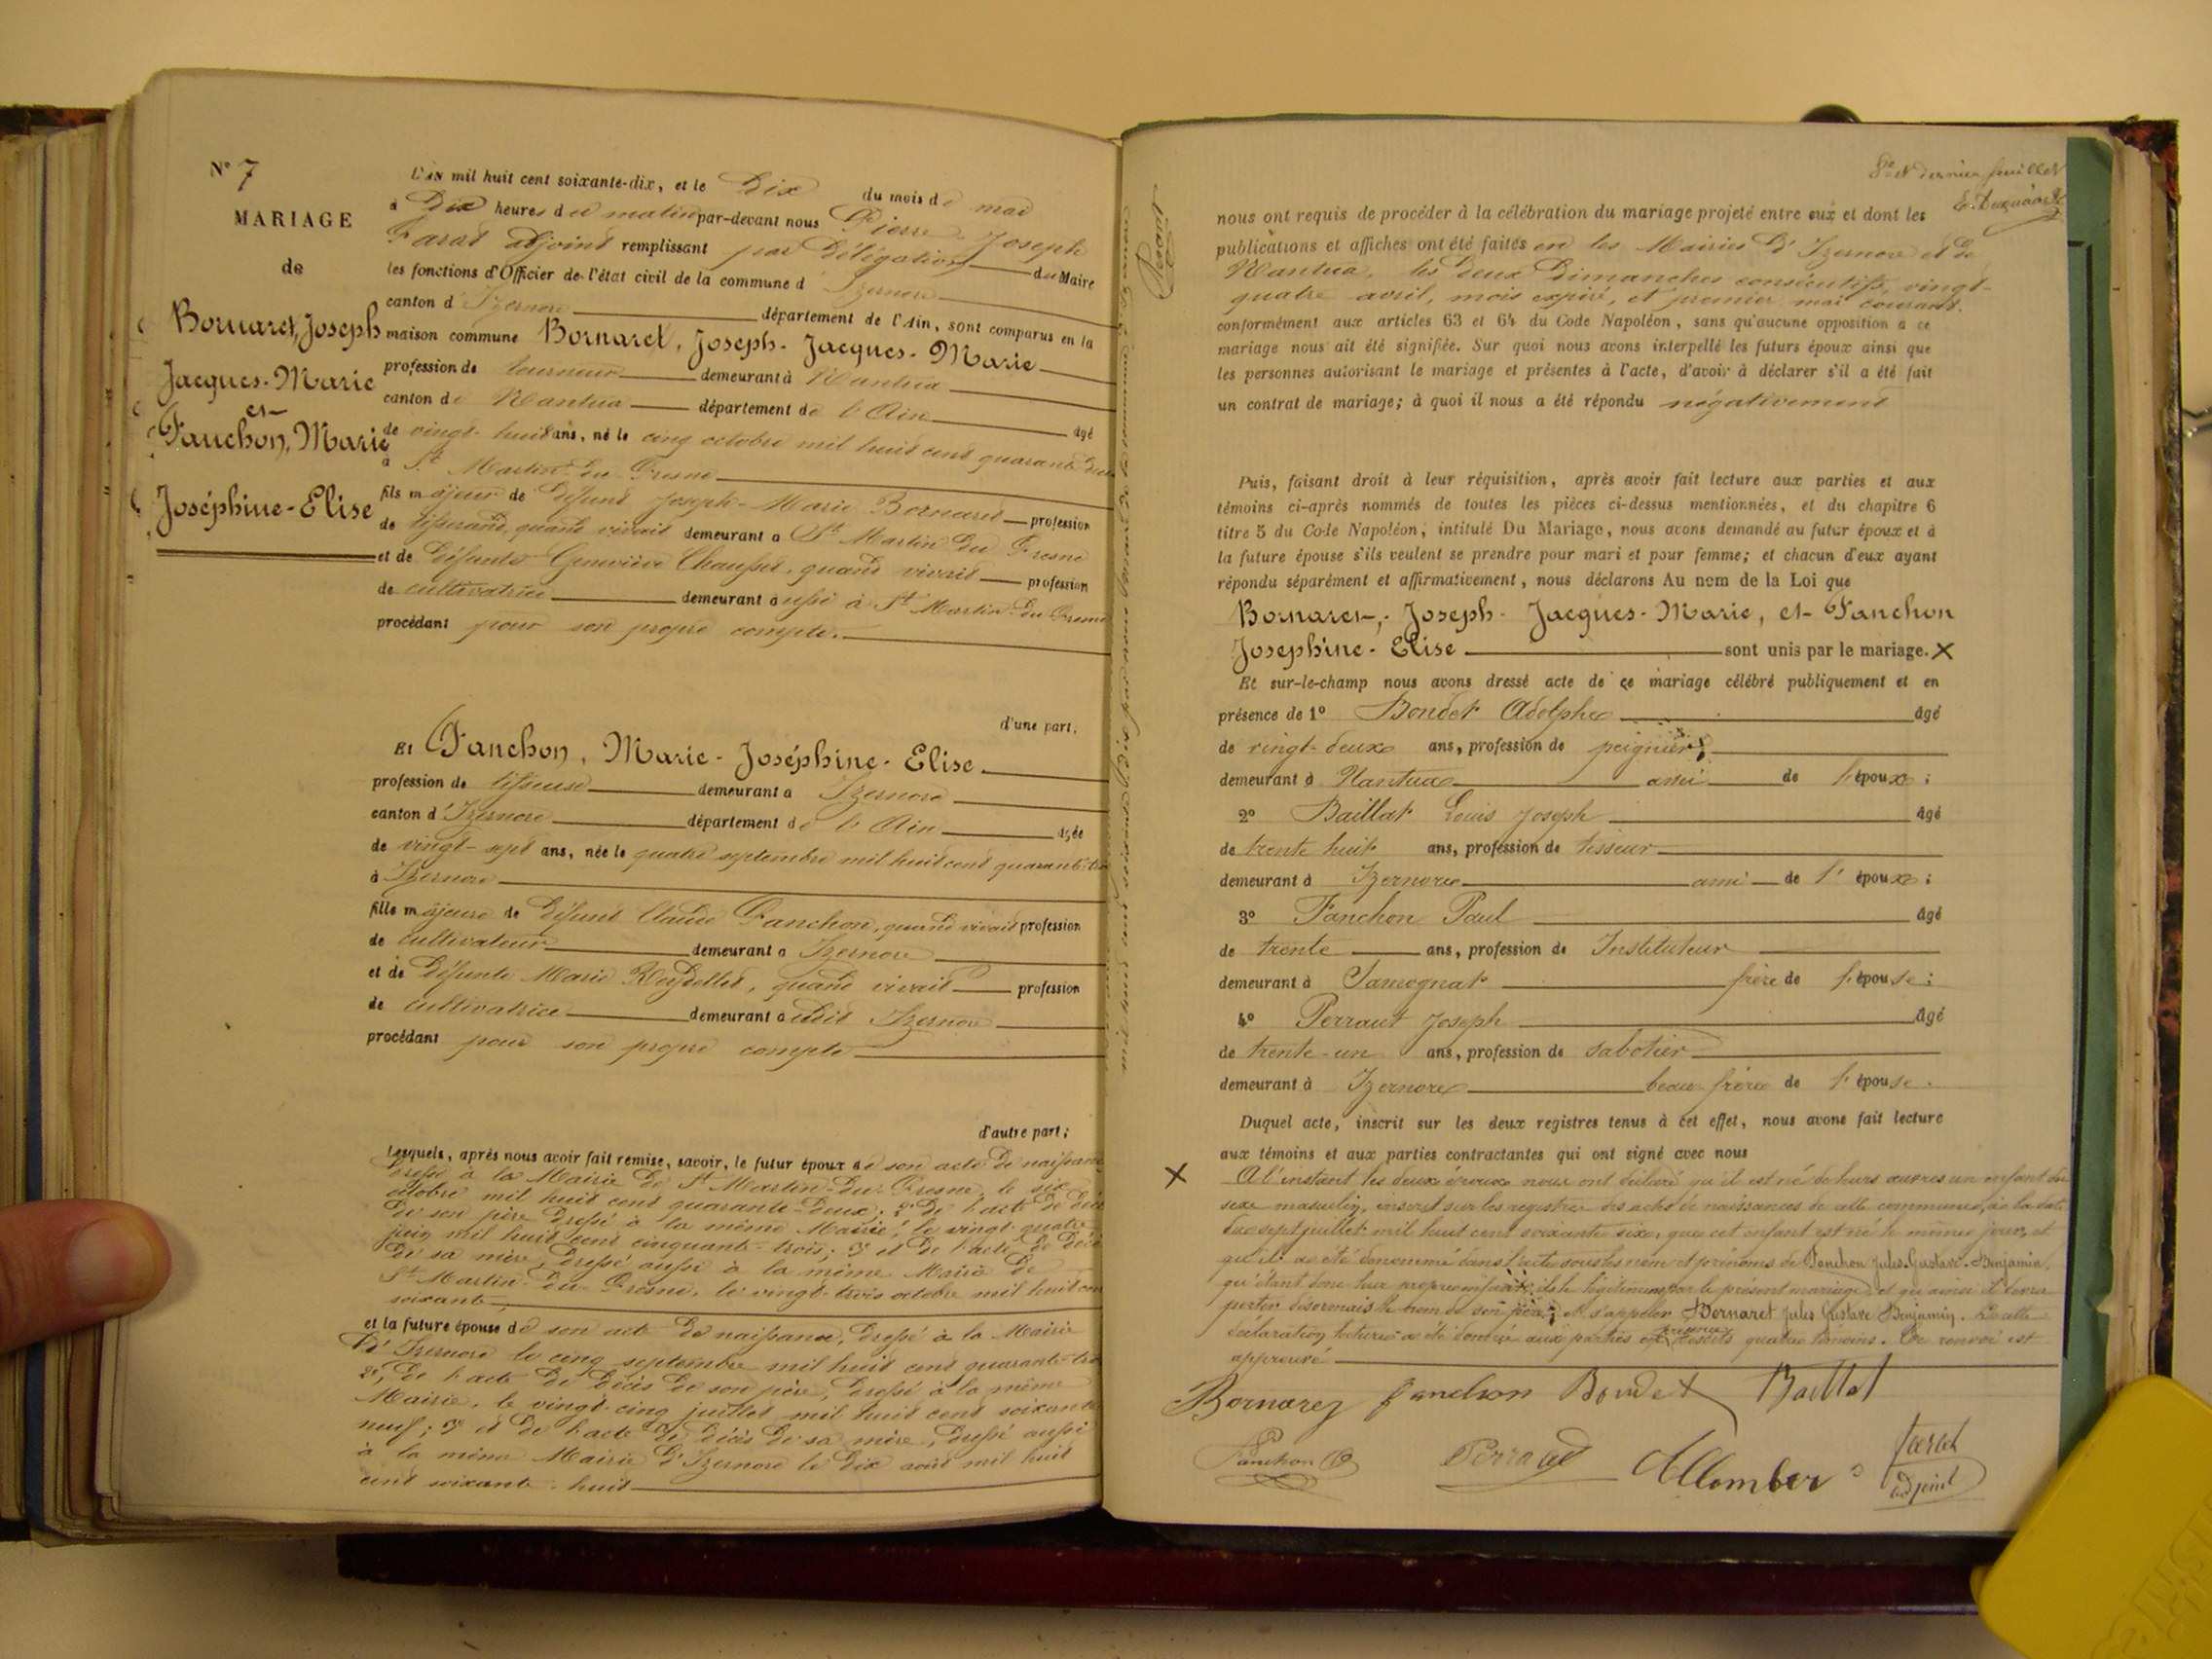 N° 7
MARIAGE
de
Bornaret, Joseph
Jacques-Marie
et
Fanchon, Marie
Joséphine-Elise
L'AN mil huit cent soixante-dix, et le Dix du mois de mai
à Dix heures du matin par-devant nous Pierre Joseph
Farat adjoint remplissant par délégation du Maire
les fonctions d'Officier de l'état civil de la commune d'Izernore
canton d'Izernore département de l'Ain, sont comparus en la
maison commune Bornaret, Joseph-Jacques-Marie
profession de tourneur demeurant à Nantua
canton de Nantua département de l'Ain âgé
de vingt-huit ans, né le cinq octobre mil huit cent quarante deux
à St Martin-du-Fresne
fils majeur de défunt Joseph-Marie Bornaret profession
de tisserand, quand vivait demeurant à St Martin du Fresne
et de défunte Geneviève Chausset, quand vivait profession
de cultivatrice demeurant aussi à St Martin-du-Fresne
procédant pour son propre compte.
d'une part,
Et Fanchon, Marie-Joséphine-Elise
profession de tisseuse demeurant à Izernore
canton d'Izernore département de l'Ain âgée
de vingt-sept ans, née le quatre septembre mil huit cent quarante-trois
à Izernore
fille majeure de défunt Claude Fanchon, quand vivait profession
de cultivateur demeurant à Izernore
et de défunte Marie, quand vivait profession
de cultivatrice demeurant audit Izernore
procédant pour son propre compte
d'autre part;
Lesquels, après nous avoir fait remise, savoir, le futur époux de son acte de naissance
dressé à la Mairie de St Martin-du-Fresne, le six
octobre mil huit cent quarante-deux; 2° de l'acte de décès
de son père dressé à la même Mairie, le vingt-quatre
juin mil huit cent cinquante-trois; 3° et de l'acte de décès
de sa mère, dressé aussi à la même Mairie de
St Martin-du-Fresne, le vingt-trois octobre mil huit cent
soixante
et la future épouse de son acte de naissance, dressé à la Mairie
d'Izernore le cinq septembre mil huit cent quarante-trois
2°, de l'acte de décès de son père, dressé à la même
Mairie, le vingt-cinq juillet mil huit cent soixante
neuf; 3° et de l'acte de décès de sa mère, dressé aussi
à la même Mairie d'Izernore le dix août mil huit
cent soixante-huit
8e et dernier feuillet
nous ont requis de procéder à la célébration du mariage projeté entre eux et dont les
publications et affiches ont été faites en les Mairies d'Izernore et de
Nantua, les deux Dimanches consécutifs, vingt-
quatre avril, mois expiré, et premier mai courant.
conformément aux articles 63 et 64 du Code Napoléon, sans qu'aucune opposition à ce
mariage nous ait été signifiée. Sur quoi nous avons interpellé les futurs époux ainsi que
les personnes autorisant le mariage et présentes à l'acte, d'avoir à déclarer s'il a été fait
un contrat de mariage; à quoi il nous a été répondu négativement
Puis, faisant droit à leur réquisition, après avoir fait lecture aux parties et aux
témoins ci-après nommés de toutes les pièces ci-dessus mentionnées, et du chapitre 6
titre 5 du Code Napoléon, intitulé Du Mariage, nous avons demandé au futur époux et à
la future épouse s'ils veulent se prendre pour mari et pour femme; et chacun d'eux ayant
répondu séparément et affirmativement, nous déclarons Au nom de la Loi que
Bornaret, Joseph-Jacques-Marie, et Fanchon
Josephine-Elise sont unis par le mariage. X
Et sur-le-champ nous avons dressé acte de ce mariage célébré publiquement et en
présence de 1° Bondet Adolphe âgé
de vingt-deux ans, profession de peignier
demeurant à Nantua ami de l'époux;
2° Baillat Louis Joseph âgé
de trente huit ans, profession de tisseur
demeurant à Izernore ami de l'époux;
3° Fanchon Paul âgé
de trente ans, profession de Instituteur
demeurant à Samognat frère de l'épouse;
4° Perraut Joseph âgé
de trente-un ans, profession de sabotier
demeurant à Izernore beau-frère de l'épouse.
Duquel acte, inscrit sur les deux registres tenus à cet effet, nous avons fait lecture
aux témoins et aux parties contractantes qui ont signé avec nous
X A l'instant les deux époux nous ont déclaré qu'il est né de leurs œuvres un enfant du
sexe masculin, inscrit sur les registres des actes de naissances de cette commune, à la date
du sept juillet mil huit cent soixante six, que cet enfant est né le même jour, et
qu'il a été dénommé dans l'acte sous les nom et prénoms de Fanchon Jules Gustave Benjamin,
qu'étant donc leur propre enfant, ils le légitiment par le présent mariage et qu'ainsi il devra
porter désormais le nom de son père, et s'appeler Bornaret Jules Gustave Benjamin. De cette
déclaration, lecture a été donnée aux parties en présence desdits quatre témoins. Ce renvoi est
approuvé
Bornarez fanchon Bondet Baillat
Fanchon P Perraut Allombert farat
adjoint